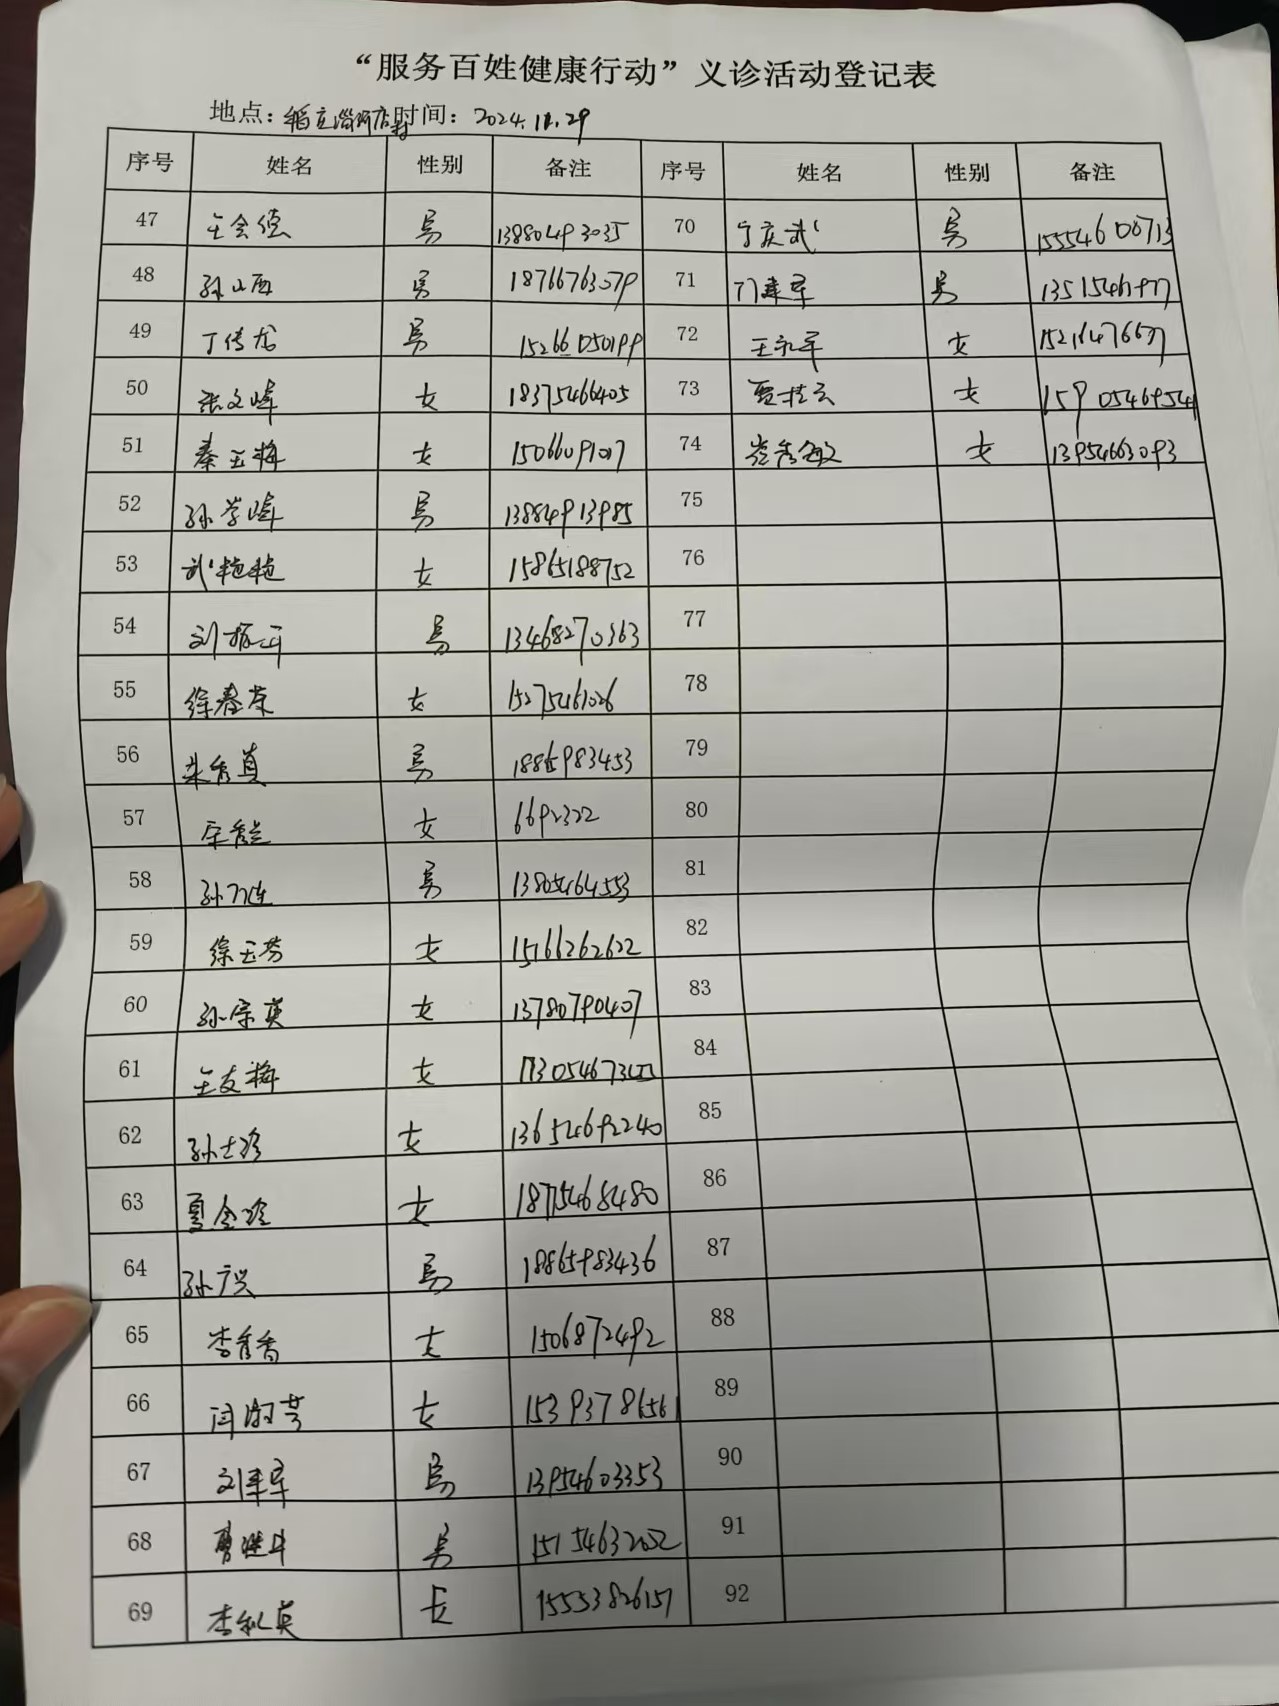 “服务百姓健康行动”义诊活动登记表
地点: 时间: 2024.11.29
序号 姓名 性别 备注 序号 姓名 性别 备注
47 王会德 男 70 宁庆武 男 15554600713
48 孙山西 男 18766763579 71 门建军 男
49 丁传龙 男 15266050199 72 王永军 女
50 张文峰 女 18375466405 73 贾桂云 女 15905469541
51 秦玉梅 女 15066091017 74 崔秀敏 女 13954663093
52 孙学峰 男 13884913985 75
53 武艳艳 女 15865188752 76
54 刘振河 男 13468270363 77
55 徐春荣 女 15275461026 78
56 朱秀真 男 18865983453 79
57 女 6692322 80
58 男 13805464553 81
59 徐玉芬 女 15166262622 82
60 孙宗英 女 13780790407 83
61 王友梅 女 84
62 孙士珍 女 13654692240 85
63 夏金玲 女 18775468480 86
64 孙广兴 男 18865983436 87
65 李秀香 女 1506872492 88
66 闫淑芳 女 15393786561 89
67 刘建军 男 13954603353 90
68 男 15154632052 91
69 李秋英 女 15553826157 92